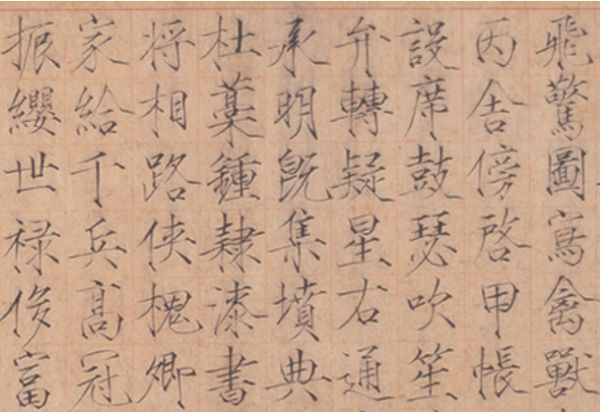 飛驚圖寫禽獸
丙舍傍啓甲帳
設席鼓瑟吹笙
弁轉疑星右通
承明既集墳典
杜藁鍾隸漆書
将相路俠槐卿
家給千兵髙冠
振纓世禄侈富